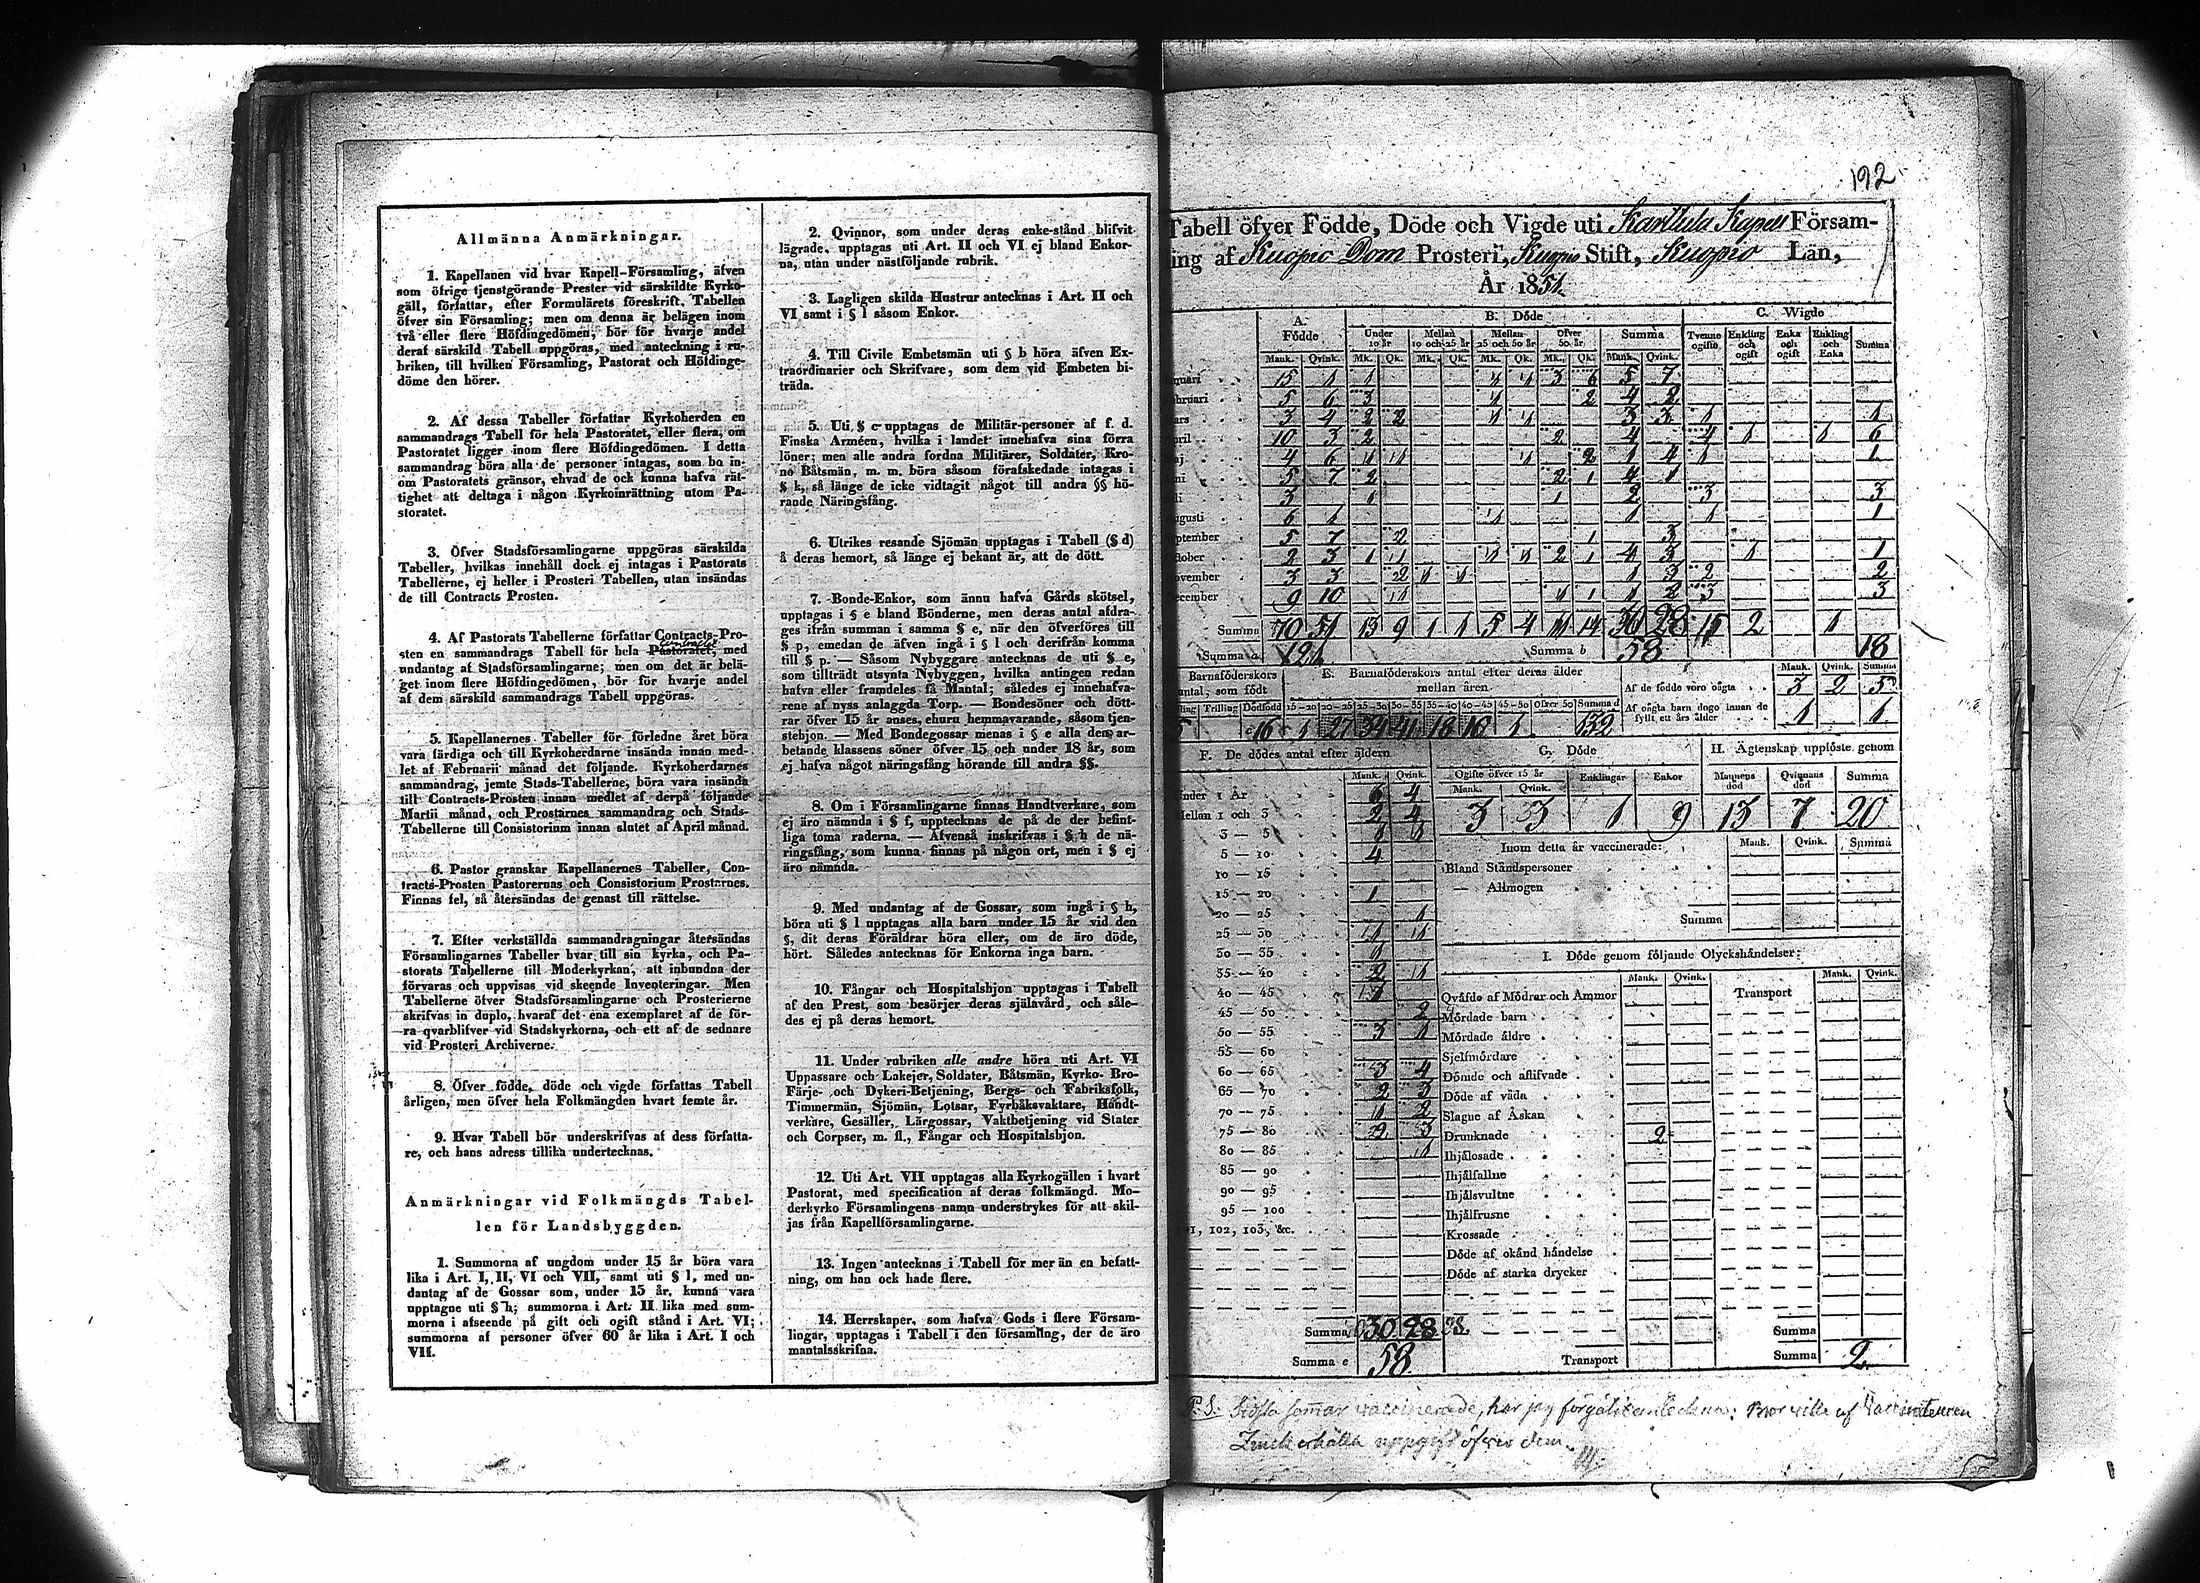 Allmänna Anmärkningar.
1. Kapellanen vid hvar Kapell-Församling, äfven
som öfrige tjenstgörande Prester vid särskildte Kyrko-
gäll, författar, efter Formulärets föreskrift, Tabellen
öfver sin Församling; men om denna är belägen inom
två eller flere Höfdingedömen, bör för hvarje andel
deraf särskild Tabell uppgöras, med anteckning i ru-
briken, till hvilken Församling, Pastorat och Höfdinge-
döme den hörer.
2. Af dessa Tabeller författar Kyrkoherden en
sammandrags Tabell för hela Pastoratet, eller flera, om
Pastoratet ligger inom flere Höfdingedömen. I detta
sammandrag böra alla de personer intagas, som bo in-
om Pastoratets gränsor, ehvad de ock kunna hafva rät-
tighet att deltaga i någon Kyrkoinrättning utom Pa-
storatet.
3. Öfver Stadsförsamlingarne uppgöras särskilda
Tabeller, hvilkas innehåll dock ej intagas i Pastorats
Tabellerne, ej heller i Prosteri Tabellen, utan insändas
de till Contracts Prosten.
4. Af Pastorats Tabellerne författar Contracts-Pro-
sten en sammandrags Tabell för hela Pastoratet, med
undantag af Stadsförsamlingarne; men om det är belä-
get inom flere Höfdingedömen, bör för hvarje andel
af dem särskild sammandrags Tabell uppgöras.
5. Kapellanernes Tabeller för förledne året böra
vara färdiga och till Kyrkoherdarne insända innan med-
let af Februarii månad det följande. Kyrkoherdarnes
sammandrag, jemte Stads-Tabellerne, böra vara insända
till Contracts-Prosten innan medlet af derpå följande
Martii månad, och Prostarnes sammandrag och Stads-
Tabellerne till Consistorium innan slutet af April månad.
6. Pastor granskar Kapellanernes Tabeller, Con-
tracts-Prosten Pastorernas och Consistorium Prostarnes.
Finnas fel, så återsändas de genast till rättelse.
7. Efter verkställda sammandragningar återsändas
Församlingarnes Tabeller hvar till sin kyrka, och Pa-
storats Tabellerne till Moderkyrkan, att inbundna der
förvaras och uppvisas vid skeende Inventeringar. Men
Tabellerne öfver Stadsförsamlingarne och Prosterierne
skrifvas in duplo, hvaraf det ena exemplaret af de för-
ra qvarblifver vid Stadskyrkorna, och ett af de sednare
vid Prosteri Archiverne.
8. Öfver födde, döde och vigde författas Tabell
årligen, men öfver hela Folkmängden hvart femte år.
9. Hvar Tabell bör underskrifvas af dess författa-
re, och hans adress tillika undertecknas.
Anmärkningar vid Folkmängds Tabel-
len för Landsbyggden.
1. Summorna af ungdom under 15 år böra vara
lika i Art. I, II, VI och VII, samt uti § l, med un-
dantag af de Gossar som, under 15 år, kunna vara
upptagne uti § h; summorna i Art. II lika med sum-
morna i afseende på gift och ogift stånd i Art. VI;
summorna af personer öfver 60 år lika i Art. I och
VII.
2. Qvinnor, som under deras enke-stånd blifvit
lägrade, upptagas uti Art. II och VI ej bland Enkor-
na, utan under nästföljande rubrik.
3. Lagligen skilda Hustrur antecknas i Art. II och
VI samt i § l såsom Enkor.
4. Till Civile Embetsmän uti § b höra äfven Ex-
traordinarier och Skrifvare, som dem vid Embeten bi-
träda.
5. Uti § c upptagas de Militär-personer af f. d.
Finska Arméen, hvilka i landet innehafva sina förra
löner; men alle andra fordna Militärer, Soldater, Kro-
no Båtsmän, m. m. böra såsom förafskedade intagas i
§ k, så länge de icke vidtagit något till andra §§ hö-
rande Näringsfång.
6. Utrikes resande Sjömän upptagas i Tabell (§ d)
å deras hemort, så länge ej bekant är, att de dött.
7. Bonde-Enkor, som ännu hafva Gårds skötsel,
upptagas i § e bland Bönderne, men deras antal afdra-
ges ifrån summan i samma § e, när den öfverföres till
§ p, emedan de äfven ingå i § l och derifrån komma
till § p. — Såsom Nybyggare antecknas de uti § e,
som tillträdt utsynta Nybyggen, hvilka antingen redan
hafva eller framdeles få Mantal; således ej innehafva-
rene af nyss anlaggda Torp. — Bondesöner och dött-
rar öfver 15 år anses, ehuru hemmavarande, såsom tjen-
stehjon. — Med Bondegossar menas i § e alla den ar-
betande klassens söner öfver 15 och under 18 år, som
ej hafva något näringsfång hörande till andra §§.
8. Om i Församlingarne finnas Handtverkare, som
ej äro nämnda i § f, upptecknas de på de der befint-
liga toma raderna. — Äfvenså inskrifvas i § h de nä-
ringsfång, som kunna finnas på någon ort, men i § ej
äro nämnda.
9. Med undantag af de Gossar, som ingå i § h,
böra uti § l upptagas alla barn under 15 år vid den
§, dit deras Föräldrar höra eller, om de äro döde,
hört. Således antecknas för Enkorna inga barn.
10. Fångar och Hospitalshjon upptagas i Tabell
af den Prest, som besörjer deras själavård, och såle-
des ej på deras hemort.
11. Under rubriken alle andre höra uti Art. VI
Uppassare och Lakejer, Soldater, Båtsmän, Kyrko- Bro-
Färje- och Dykeri-Betjening, Bergs- och Fabriksfolk,
Timmermän, Sjömän, Lotsar, Fyrbåksvaktare, Handt-
verkare, Gesäller, Lärgossar, Vaktbetjening vid Stater
och Corpser, m. fl., Fångar och Hospitalshjon.
12. Uti Art. VII upptagas alla Kyrkogällen i hvart
Pastorat, med specification af deras folkmängd. Mo-
derkyrko Församlingens namn understrykes för att skil-
jas från Kapellförsamlingarne.
13. Ingen antecknas i Tabell för mer än en befatt-
ning, om han ock hade flere.
14. Herrskaper, som hafva Gods i flere Försam-
lingar, upptagas i Tabell i den församling, der de äro
mantalsskrifna.
192
Tabell öfver Födde, Döde och Vigde uti Karttula Kapell Försam-
ling af Kuopio Dom Prosteri, Kuopio Stift, Kuopio Län,
År 1851.
A. Födde B. Döde C. Wigde
Under 10 år Mellan 10 och 25 år Mellan 25 och 50 år Öfver 50 år Summa Tvenne ogifte Enkling och ogift Enka och ogift Enkling och Enka Summa
Mank. Qvink. Mk. Qk. Mk. Qk. Mk. Qk. Mk. Qk. Mank. Qvink.
nuari 15 1 1 1 1 3 6 5 7
bruari 5 6 3 1 2 4 2
ars 3 4 2 2 1 1 3 3 1 1
pril 10 3 2 2 4 4 1 1 6
aj 4 6 1 1 1 2 1 4 1 1
ni 5 7 2 2 1 4 1
li 3 1 1 2 3 3
ugusti 6 1 1 1 1 1
ptember 5 7 2 1 3
ktober 2 3 1 1 1 1 2 1 4 3 1 1
ovember 3 3 2 1 1 1 3 2 2
ecember 9 10 1 1 1 1 2 3 3
Summa 70 51 13 9 1 1 5 4 11 14 30 28 15 2 1
Summa a 121 Summa b 58 18
Barnaföderskors
antal, som födt
lling Trilling Dödfödd
5 16
E. Barnaföderskors antal efter deras ålder
mellan åren.
15—20 20—25 25—30 30—35 35—40 40—45 45—50 Öfver 50 Summa d
1 27 34 41 18 10 1 132
Mank. Qvink. Summa
Af de födde voro oägta 3 2 5
Af oägta barn dogo innan de
fyllt ett års ålder 1 1
F. De dödes antal efter åldern
Mank. Qvink.
nder 1 År 6 4
Mellan 1 och 3 2 4
3 — 5 1 3
5 — 10 4
10 — 15
15 — 20 1
20 — 25 1
25 — 30 1 1
30 — 35 1
35 — 40 2 1
40 — 45 1
45 — 50 2
50 — 55 3 1
55 — 60
60 — 65 3 4
65 — 70 2 3
70 — 75 1 2
75 — 80 2 3
80 — 85 1
85 — 90
90 — 95
95 — 100
101, 102, 103, &c.
Summa 30 28
Summa e 58
G. Döde
Ogifte öfver 15 år Enklingar Enkor
Mank. Qvink.
3 3 1 9
H. Ägtenskap upplöste genom
Mannens död Qvinnans död Summa
13 7 20
Inom detta år vaccinerade: Mank. Qvink. Summa
Bland Ståndspersoner
— Allmogen
Summa
I. Döde genom följande Olyckshändelser:
Mank. Qvink. Transport Mank. Qvink.
Qväfde af Mödrar och Ammor
Mördade barn
Mördade äldre
Sjelfmördare
Dömde och aflifvade
Döde af våda
Slagne af Åskan
Drunknade 2
Ihjälosade
Ihjälfallne
Ihjälsvultne
Ihjälfrusne
Krossade
Döde af okänd händelse
Döde af starka drycker
Summa
Transport Summa 2
P. S. Sidsta sommar vaccinerade, har jag förgätit anteckna: Bror ville af Vaccinteuren
Zmek erhålla uppgift öfver dem.